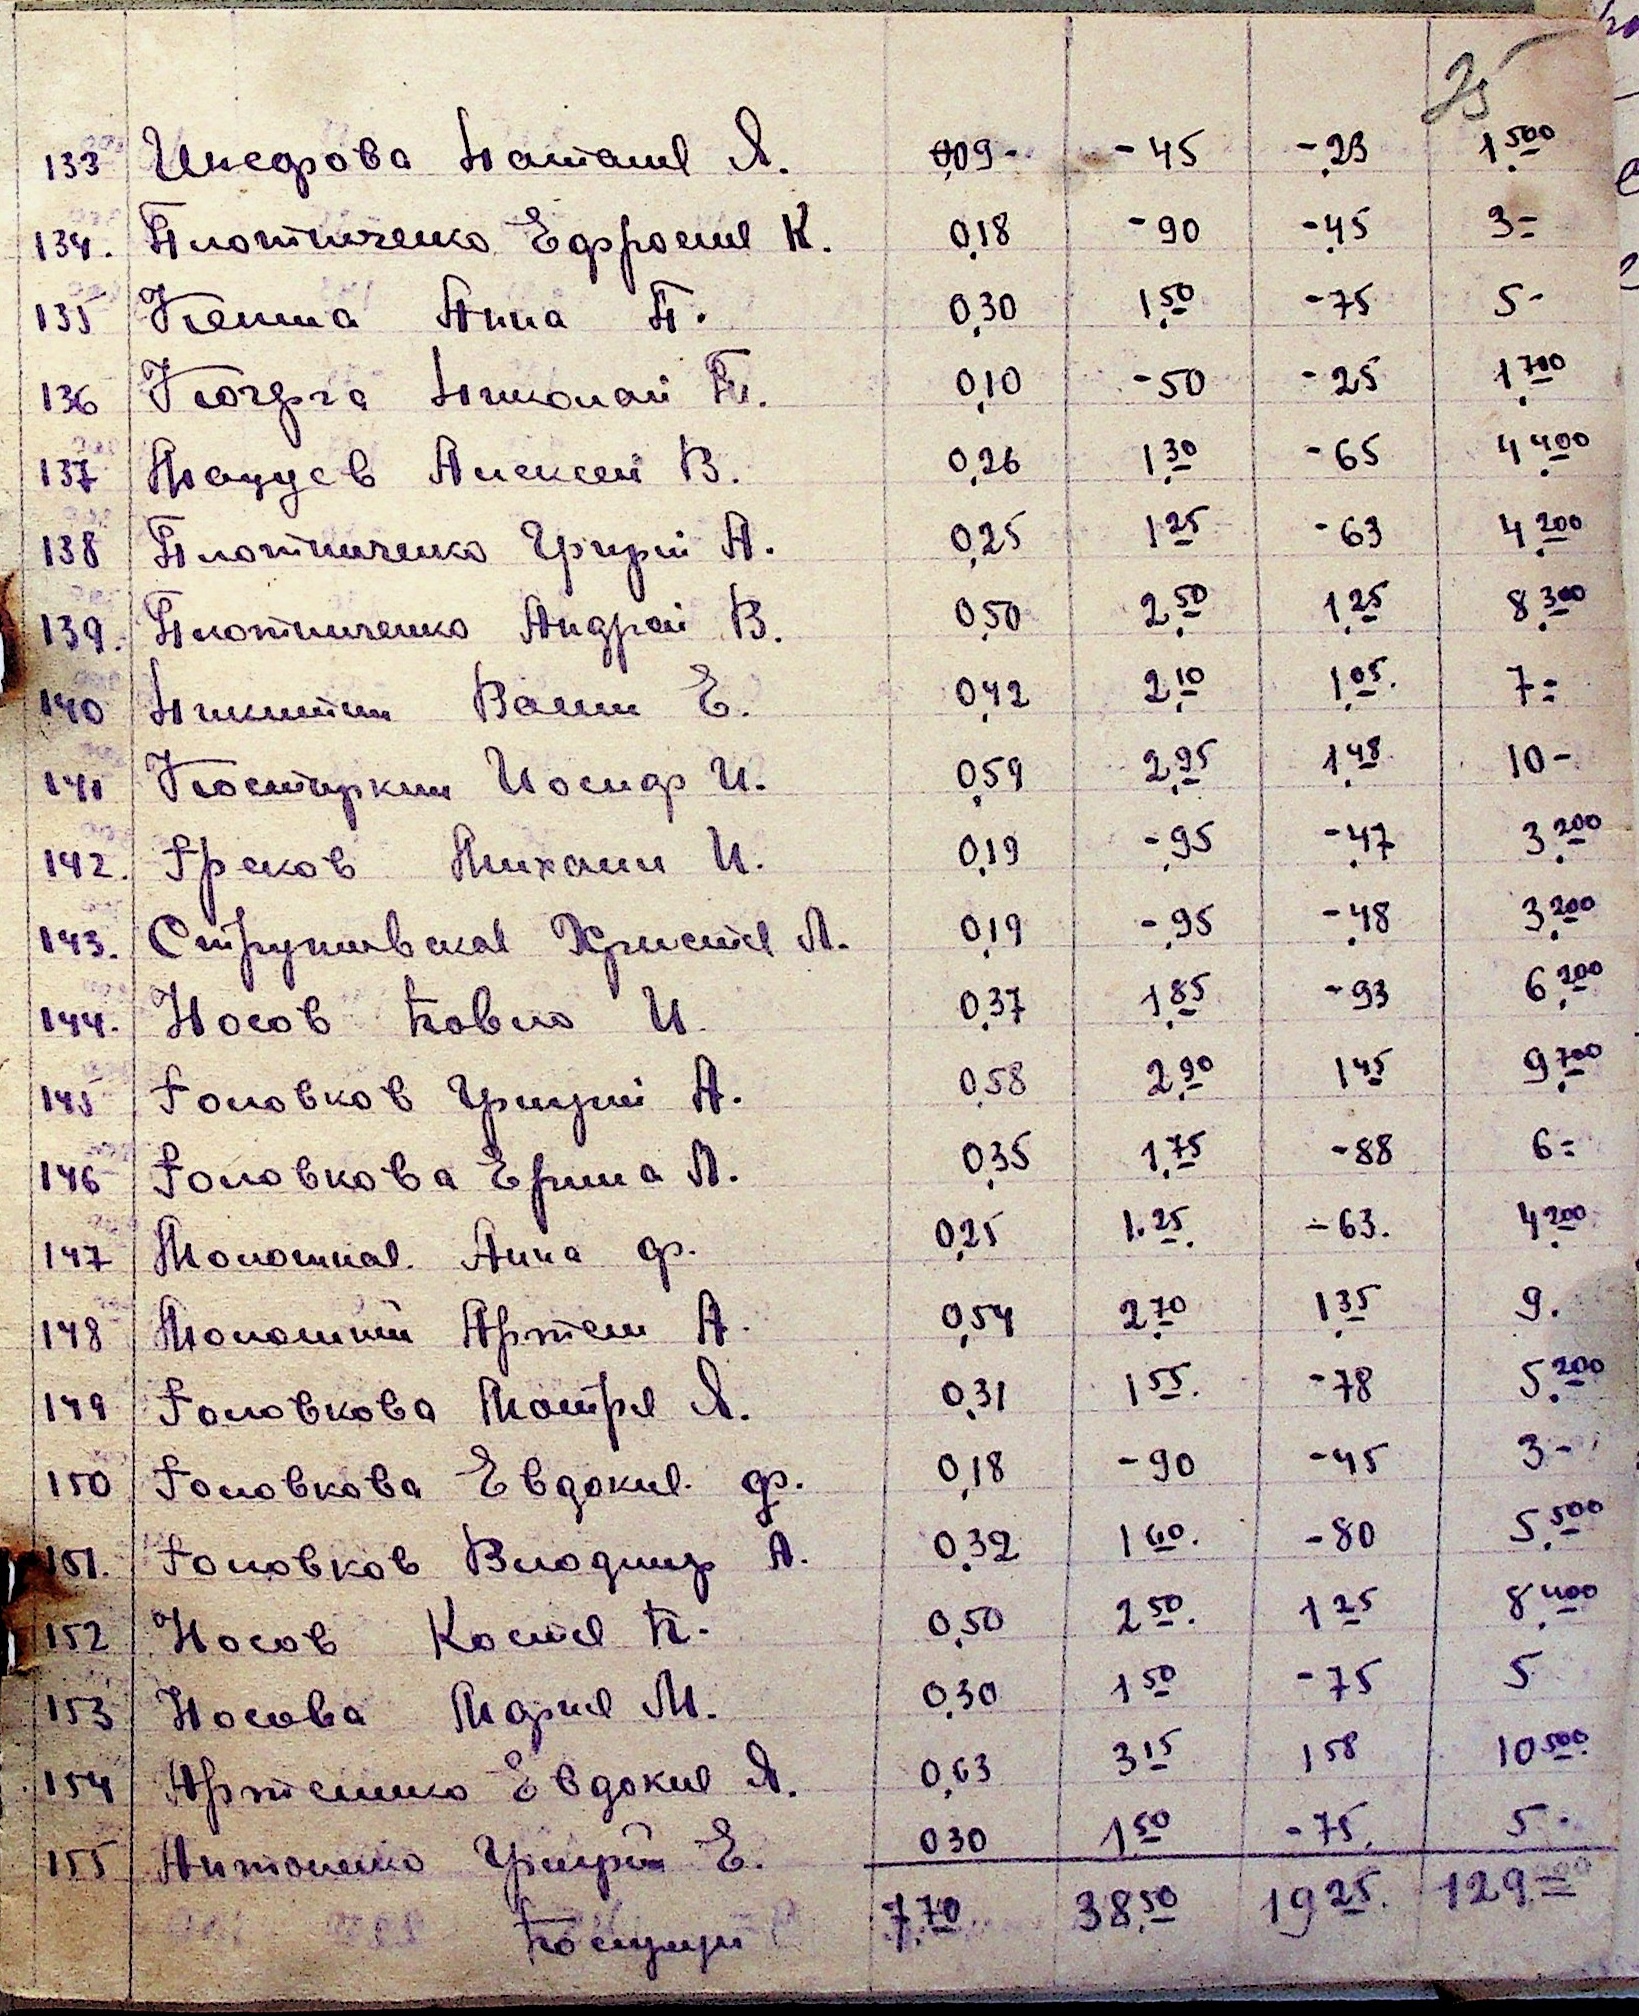 25
133 Шкедрова Наталия Я. 0,09- -45 -23 1,500
134. Плотниченко Ефросия К. 0,18 -90 -45 3=
135 Анна П. 0,30 1,50 -75 5-
136 Николай П. 0,10 -50 -25 1,700
137 Мацуев Алексей В. 0,26 1,30 -65 4,400
138 Плотниченко Григрий А. 0,25 1,25 -63 4,200
139. Плотниченко Андрей В. 0,50 2,50 1,25 8,300
140 Никитин Е. 0,42 2,10 1,05. 7=
141 Костыркин Иосиф И. 0,59 2,95 1,48 10-
142. Греков Михаил И. 0,19 -95 -47 3,200
143. Христия Л. 0,19 -95 -48 3,200
144. Носов Павло И. 0,37 1,85 -93 6,200
145 Головков Григрий А. 0,58 2,90 1 45 9,700
146 Головкова Ерина Л. 0,35 1,75 -88 6=
147 Молошная. Анна Ф. 0,25 1.25. -63. 4,200
148 Молошний Артем А. 0,54 2,70 1,35 9.
149 Головкова Мотря Я. 0,31 1 55. -78 5,200
150 Головкова Евдокия. Ф. 0,18 -90 -45 3-
151. Головков Влодимир А. 0,32 1 60. -80 5,500
152 Носов Костя П. 0,50 2 50. 1 25 8,400
153 Носова Мария М. 0,30 1 50 -75 5
154 Артемико Евдокия Я. 0,63 3 15 1 58 10 500
155 Антоненко Григрий Е. 0 30 1,50 -75. 5-
7,70 38,50 19 25. 129